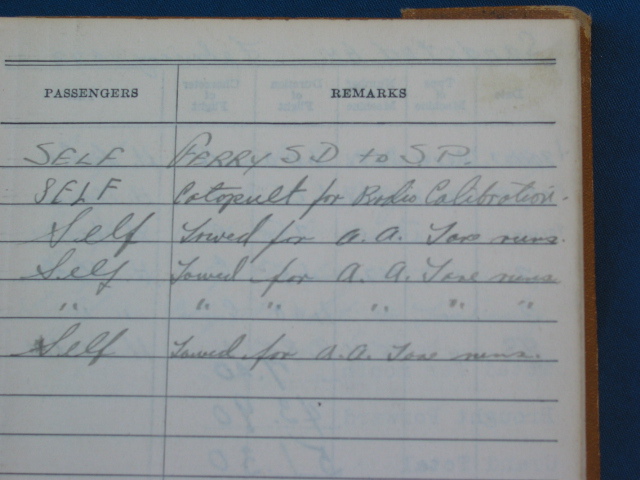 PASSENGERS REMARKS
SELF FERRY S.D. to S.P.
SELF Catapult for Radio Calibration.
Self Towed for A.A. Fire runs.
Self Towed for A.A. Fire runs
" " " " " "
Self Towed for A.A. Fire runs.